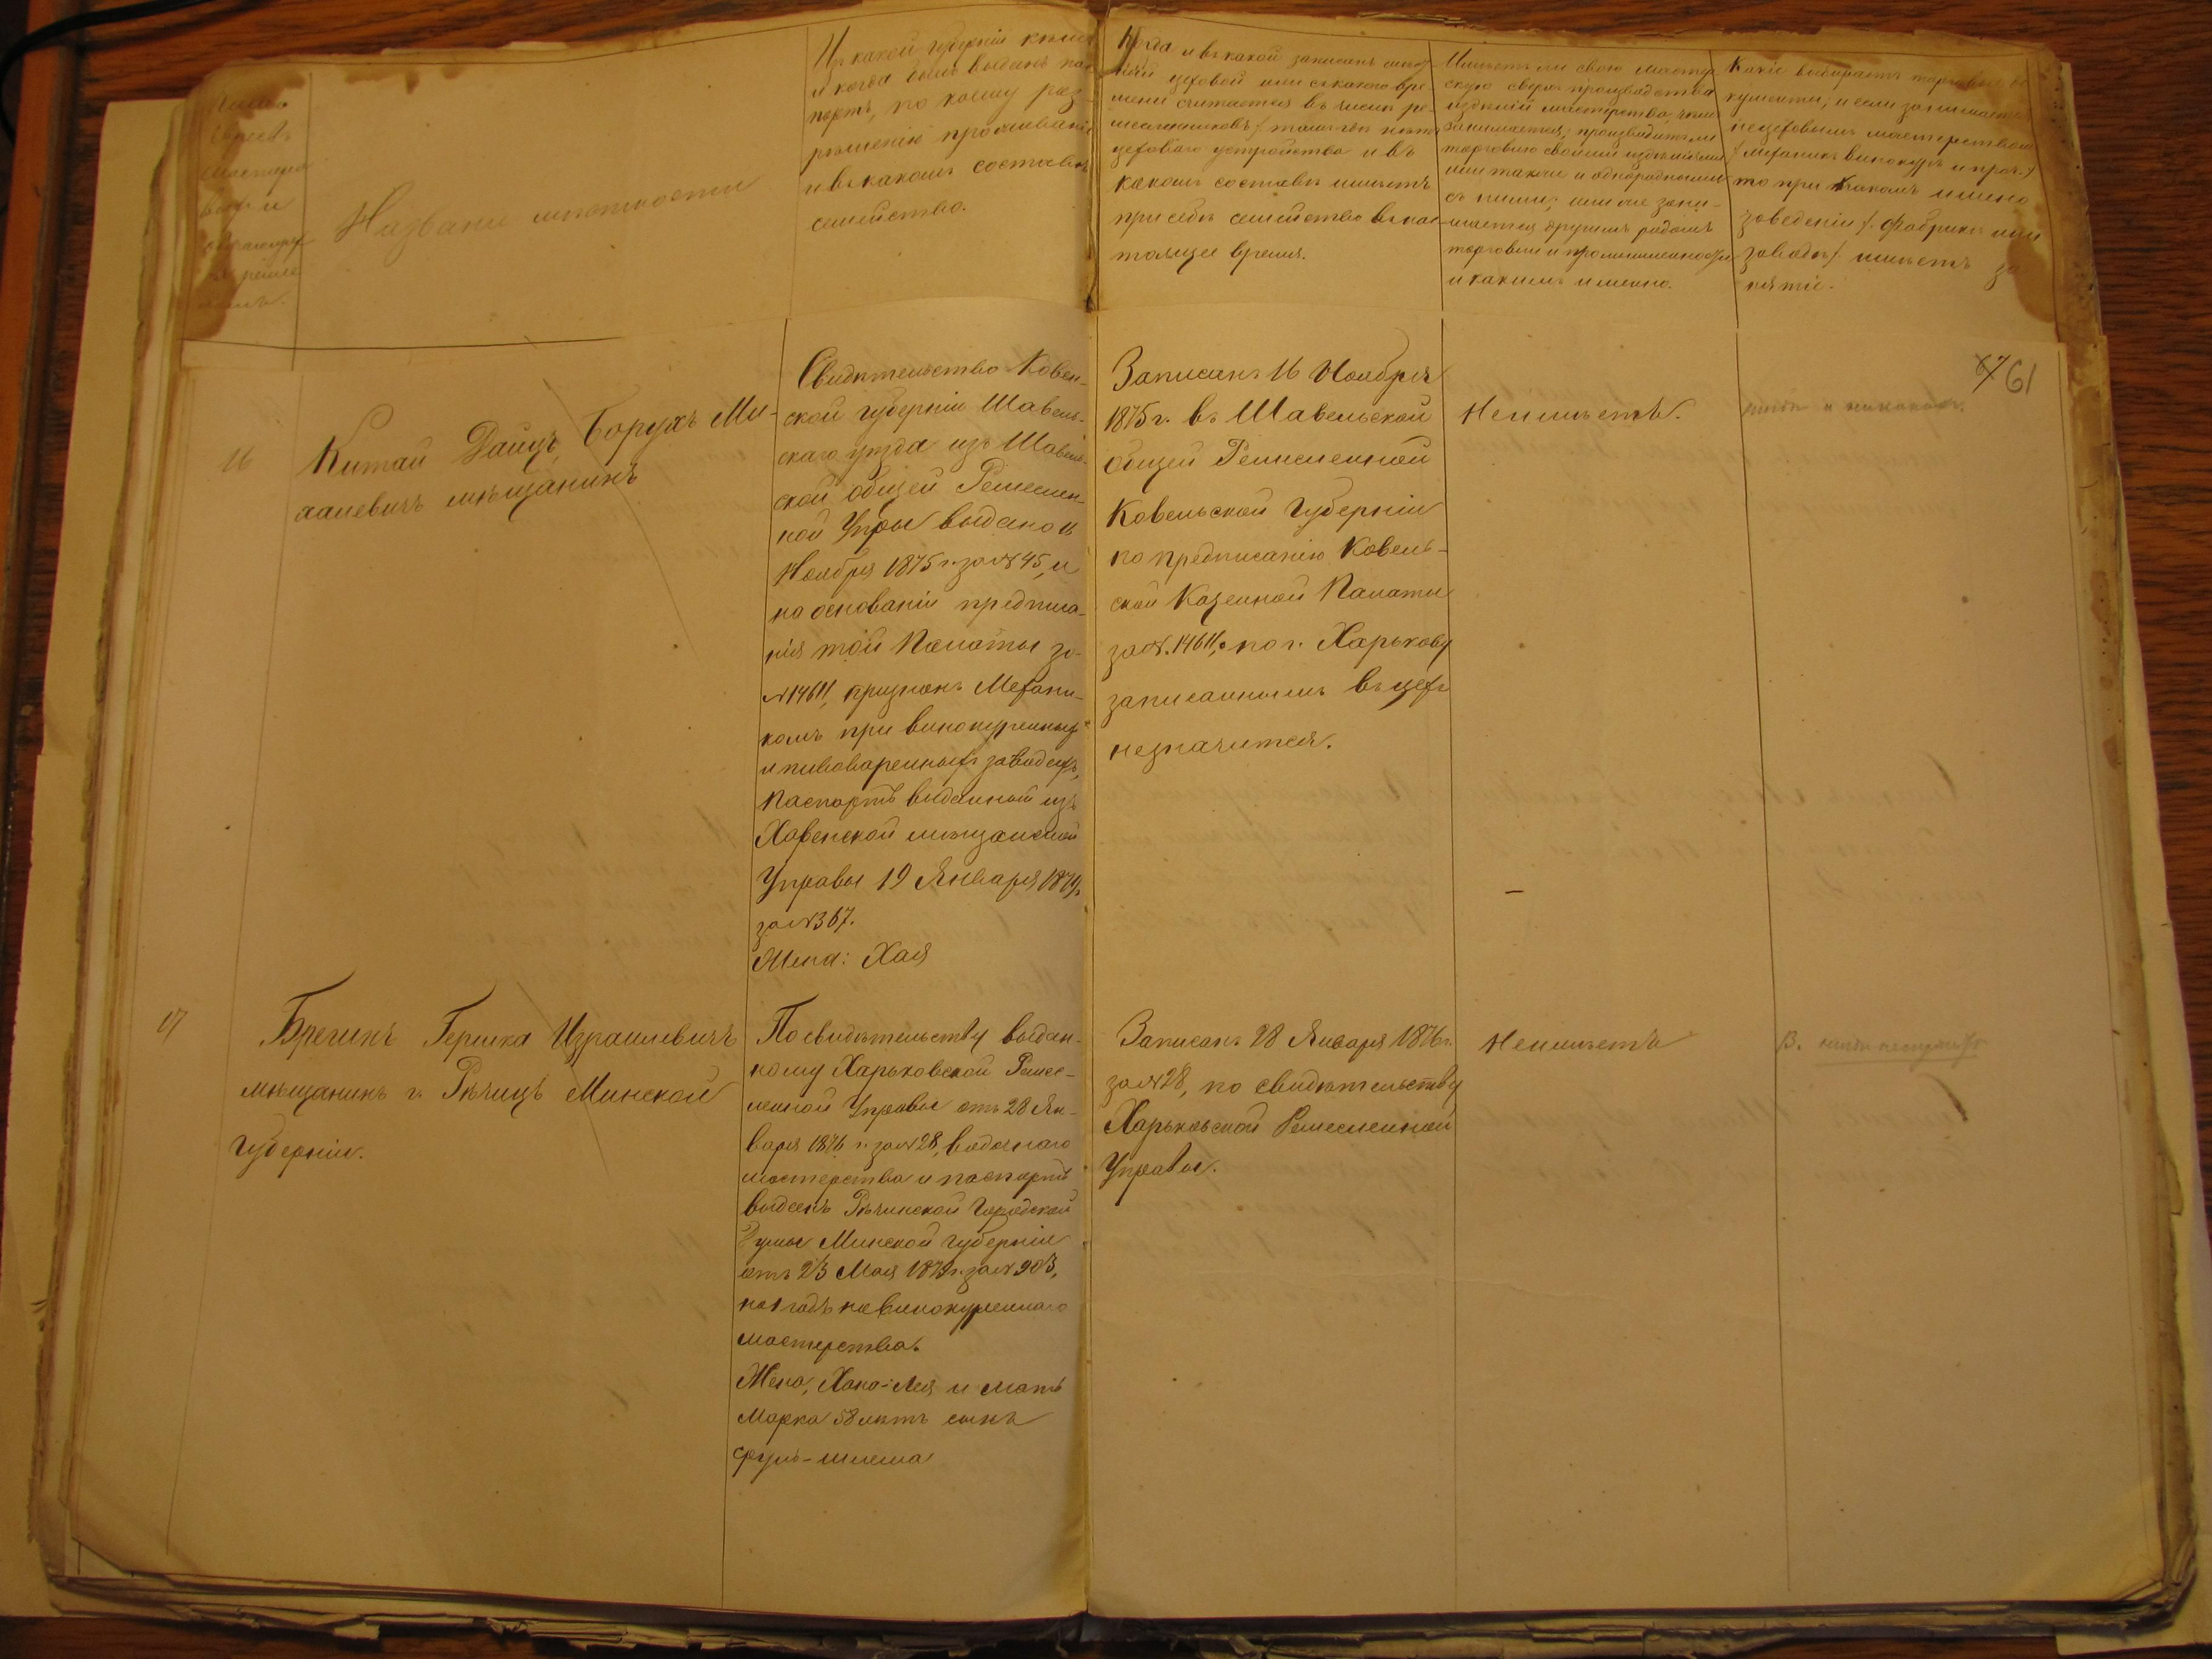 Названіе мѣстности
Изъ какой губерніи
и когда былъ выданъ пас-
портъ, по коему раз-
рѣшенію проживаніе
и въ какомъ составѣ
семейство.
Когда и въ какой записанъ
цеховой или съ какого вре-
мени считается въ числѣ ре-
месленниковъ
цеховаго устройства и въ
какомъ составѣ имѣетъ
при себѣ семейство въ нас-
тоящее время.
Имѣетъ ли свою мастер-
скую сверхъ производства
издѣлій мастерства, чѣмъ
занимается; производитъ ли
торговлю своими издѣліями
или также и однородными
съ ними; или же зани-
мается другимъ родомъ
торговли и промышленности
и какимъ именно.
Какіе выбираетъ торговые до-
кументы; и если занимается
нецеховымъ мастерствомъ
(Механикъ винокуръ и проч.)
то при какомъ именно
заведеніи (фабрикѣ или
заводѣ) имѣетъ за-
нятіе.
61
16
Китай Давидъ, Борухъ Ми-
аелевичъ мѣщанинъ
Свидѣтельство Ковен-
ской губерніи Шавель-
скаго уѣзда изъ Шавель-
ской общей Ремеслен-
ной Упры выдано 16
Ноября 1875 г. за № 45, и
на основаніи предписа-
нія той Палаты за
№ 14611, признанъ Механи-
комъ при винокуренныхъ
и пивоваренныхъ заводахъ,
Паспортъ выданный изъ
мѣщанской
Управы 19 Января 1879 г.
за № 367.
Жена: Хая
Записанъ 16 Ноября
1875 г. въ Шавельской
общей Ремесленной
Ковельской Губерніи
по предписанію Ковель-
ской Казенной Палаты
за № 14611, по г. Харькову
записаннымъ въ цехъ
незначится.
Неимѣетъ.
17
Брегинъ Гершка Израилевичъ
мѣщанинъ г. Рѣчицъ Минской
Губерніи.
По свидѣтельству выдан-
ному Харьковской Ремес-
ленной Управы отъ 28 Ян-
варя 1876 г. за № 28,
мастерства и паспортъ
выданъ Рѣчицкой Городской
Думы Минской Губерніи
отъ 23 Мая 1879 г. за № 903,
на 1 годъ на винокуреннаго
мастерства.
Жена, Хана-Лея и мать
Марка 58 лѣтъ сынъ
Записанъ 28 Января 1876 г.
за № 28, по свидѣтельству
Харьковской Ремесленной
Управы.
Неимѣетъ